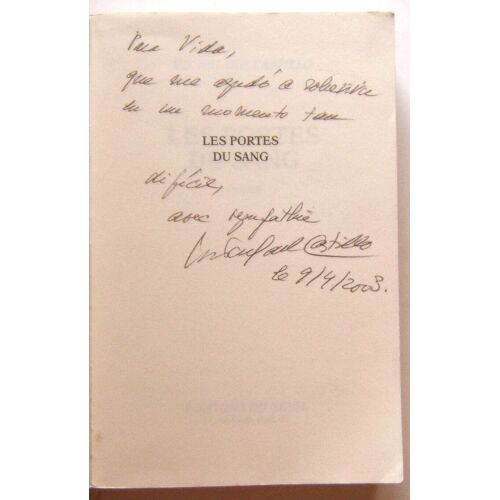 Para Vida,
que me ayudó a sobrevivir
en un momento tan
LES PORTES
DU SANG
difícil,
avec sympathie
Michel del Castillo
le 9/4/2003.